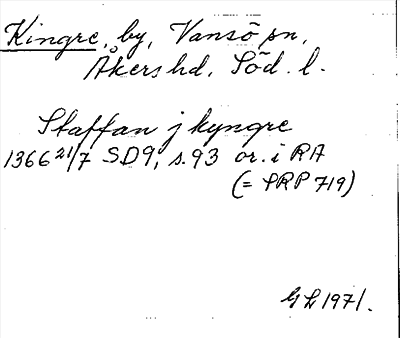 Kingre, by, Vansö sn,
Åkers hd, Söd. l.
Staffan j kyngre
1366 21/7 SD9, s. 93 or. i RA
(= SRP 719)
G L 1971.